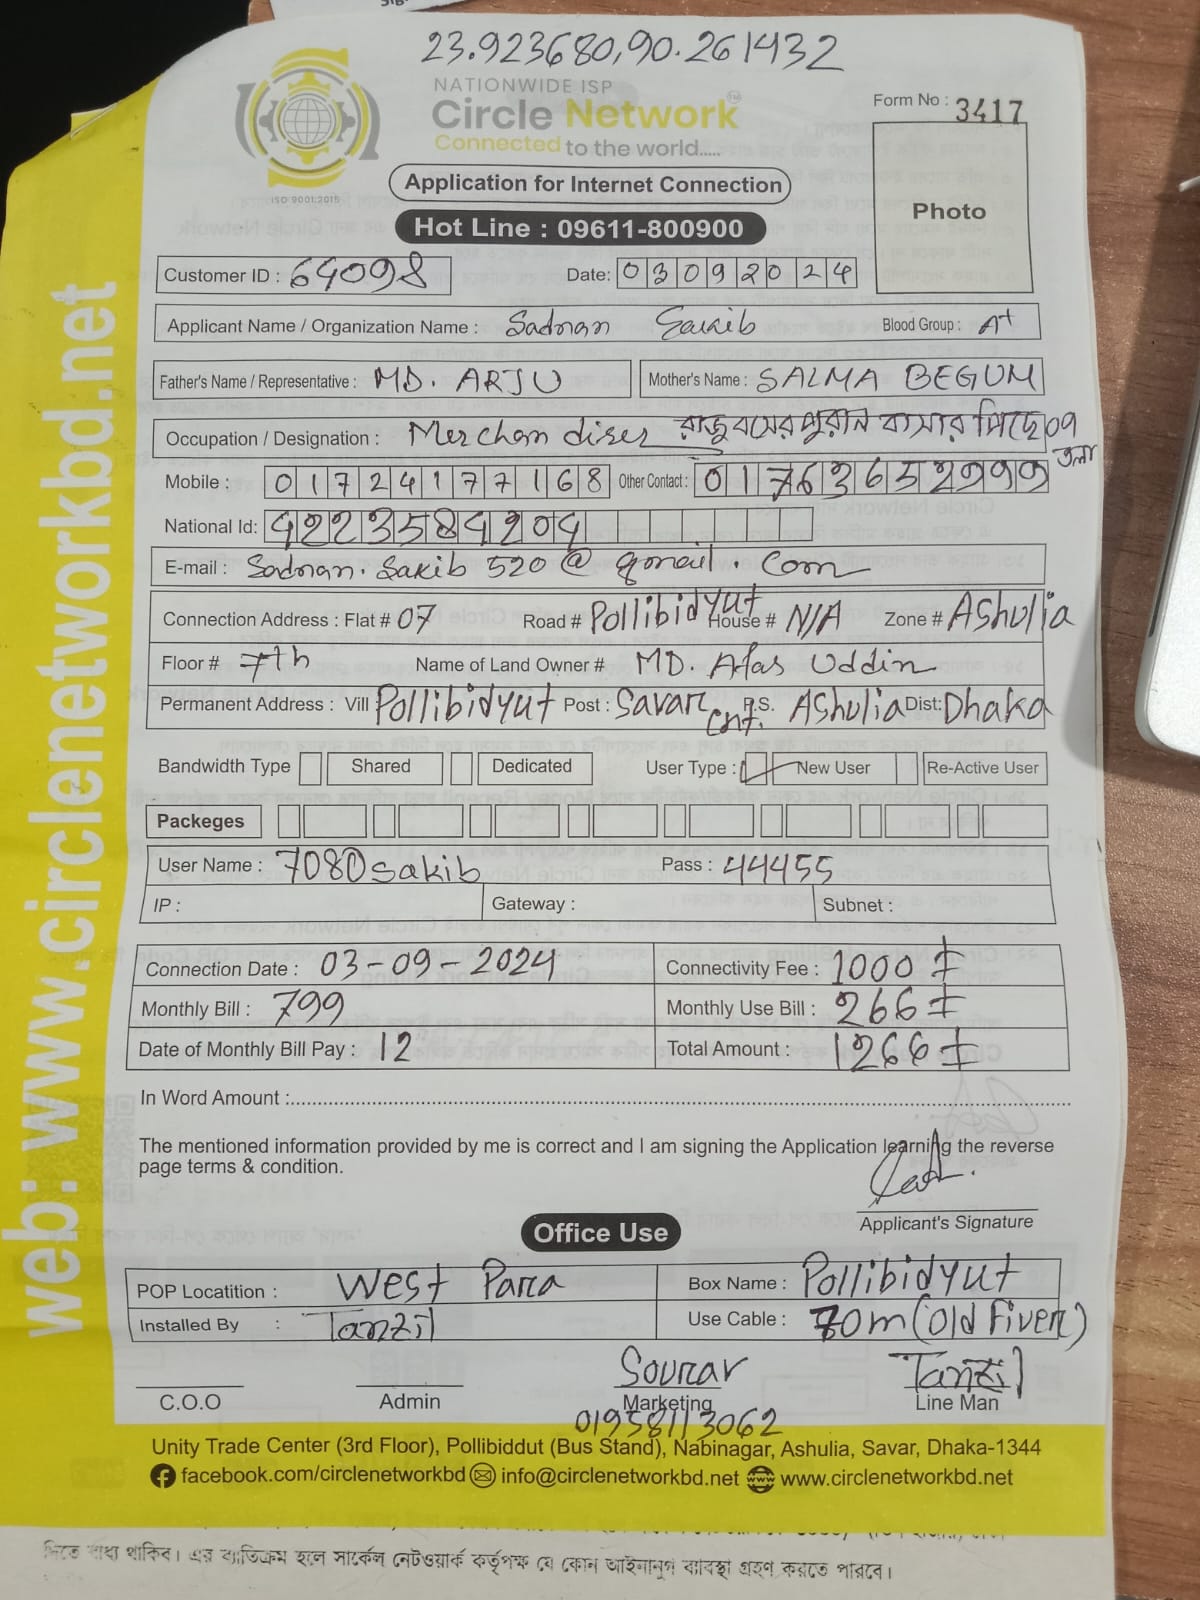 23.923680,90.261432
NATIONWIDE ISP
Circle Network™
Connected to the world.....
ISO 9001:2015
Form No : 3417
Photo
Application for Internet Connection
Hot Line : 09611-800900
Customer ID : 64098 Date: 03092024
Applicant Name / Organization Name : Sadnan Sakib Blood Group : A+
Father's Name / Representative : MD. ARJU Mother's Name : SALMA BEGUM
Occupation / Designation : Merchandiser রাজু বসের পুরান বাসার পিছে ০৭ তলা
Mobile : 01724177168 Other Contact : 01763652999
National Id: 4223584204
E-mail : Sadnan.Sakib520@gmail.com
Connection Address : Flat # 07 Road # Pollibidyut House # N/A Zone # Ashulia
Floor # 7th Name of Land Owner # MD. Afas Uddin
Permanent Address : Vill Pollibidyut Post : Savar Cnt. P.S. Ashulia Dist: Dhaka
Bandwidth Type Shared Dedicated User Type : New User Re-Active User
Packeges
User Name : 7080sakib Pass : 44455
IP : Gateway : Subnet :
Connection Date : 03-09-2024 Connectivity Fee : 1000
Monthly Bill : 799 Monthly Use Bill : 266
Date of Monthly Bill Pay : 12 Total Amount : 1266
In Word Amount :
The mentioned information provided by me is correct and I am signing the Application learning the reverse
page terms & condition.
Applicant's Signature
Office Use
POP Locatition : West Para Box Name : Pollibidyut
Installed By : Tanzil Use Cable : 70m (old Fiver)
Sourav Tanzil
C.O.O Admin Marketing Line Man
01958113062
Unity Trade Center (3rd Floor), Pollibiddut (Bus Stand), Nabinagar, Ashulia, Savar, Dhaka-1344
facebook.com/circlenetworkbd info@circlenetworkbd.net www.circlenetworkbd.net
web: www.circlenetworkbd.net
দিতে বাধ্য থাকিব। এর ব্যতিক্রম হলে সার্কেল নেটওয়ার্ক কর্তৃপক্ষ যে কোন আইনানুগ ব্যবস্থা গ্রহণ করতে পারবে।